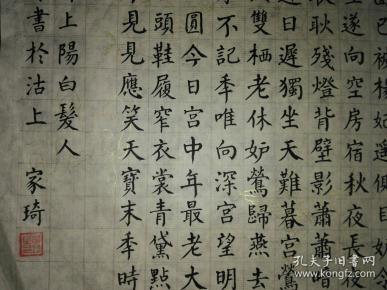 已被楊妃遙側目妒令
遂向空房宿秋夜長夜
耿殘燈背壁影蕭蕭暗
日遲獨坐天難暮宮鶯
雙栖老休妒鶯歸燕去
不記季唯向深宮望明
圓今日宮中年最老大
頭鞋履窄衣裳青黛點
見見應笑天寶末季時
上陽白髮人
書於沽上 家琦
孔夫子旧书网